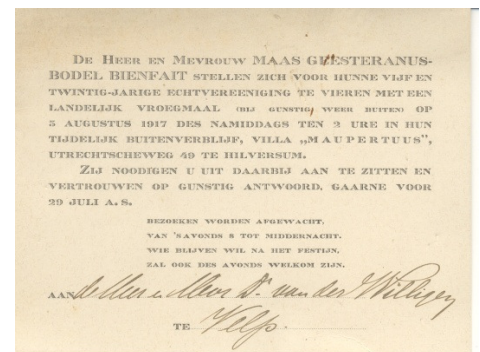 DE HEER EN MEVROUW MAAS GEESTERANUS-
BODEL BIENFAIT STELLEN ZICH VOOR HUNNE VIJF EN
TWINTIG-JARIGE ECHTVEREENIGING TE VIEREN MET EEN
LANDELIJK VROEGMAAL (BIJ GUNSTIG WEER BUITEN) OP
5 AUGUSTUS 1917 DES NAMIDDAGS TEN 2 URE IN HUN
TIJDELIJK BUITENVERBLIJF, VILLA „MAUPERTUUS”,
UTRECHTSCHEWEG 49 TE HILVERSUM.
ZIJ NOODIGEN U UIT DAARBIJ AAN TE ZITTEN EN
VERTROUWEN OP GUNSTIG ANTWOORD, GAARNE VOOR
29 JULI A. S.
BEZOEKEN WORDEN AFGEWACHT,
VAN 'SAVONDS 8 TOT MIDDERNACHT.
WIE BLIJVEN WIL NA HET FESTIJN,
ZAL OOK DES AVONDS WELKOM ZIJN.
AAN de Heer en Mevr Dr. van der Willigen
TE Velp.